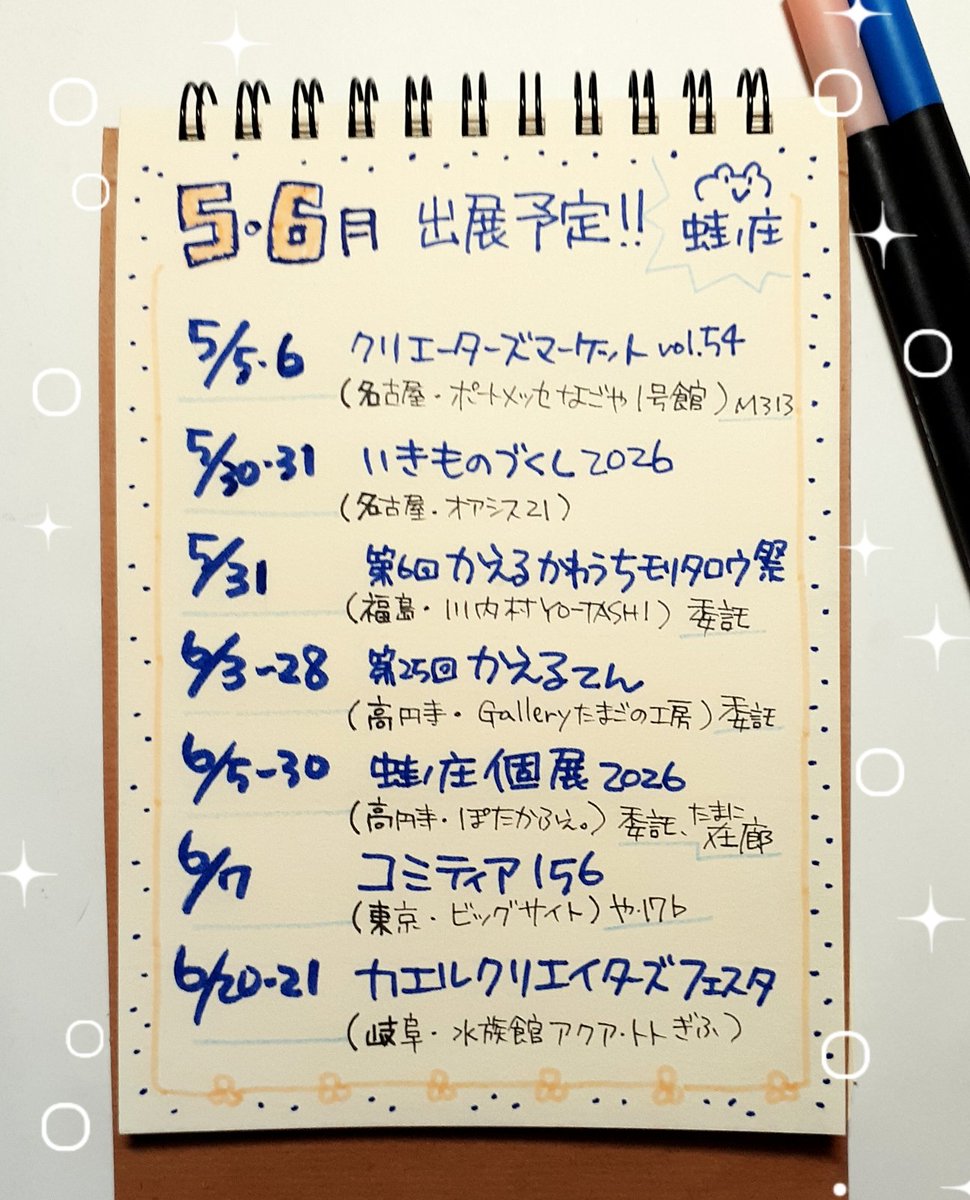 5・6月 出展予定!!
蛙ノ庄
5/5・6 クリエーターズマーケット vol.54
(名古屋・ポートメッセなごや1号館) M313
5/30・31 いきものづくし2026
(名古屋・オアシス21)
5/31 第6回かえるかわうちモリタロウ祭
(福島・川内村YO-TASHI) 委託
6/3-28 第25回かえるてん
(高円寺・Galleryたまごの工房) 委託
6/5-30 蛙ノ庄個展2026
(高円寺・ぽたかふぇ。) 委託、たまに在廊
6/7 コミティア156
(東京・ビッグサイト) や・17b
6/20・21 カエルクリエイターズフェスタ
(岐阜・水族館アクア・トトぎふ)